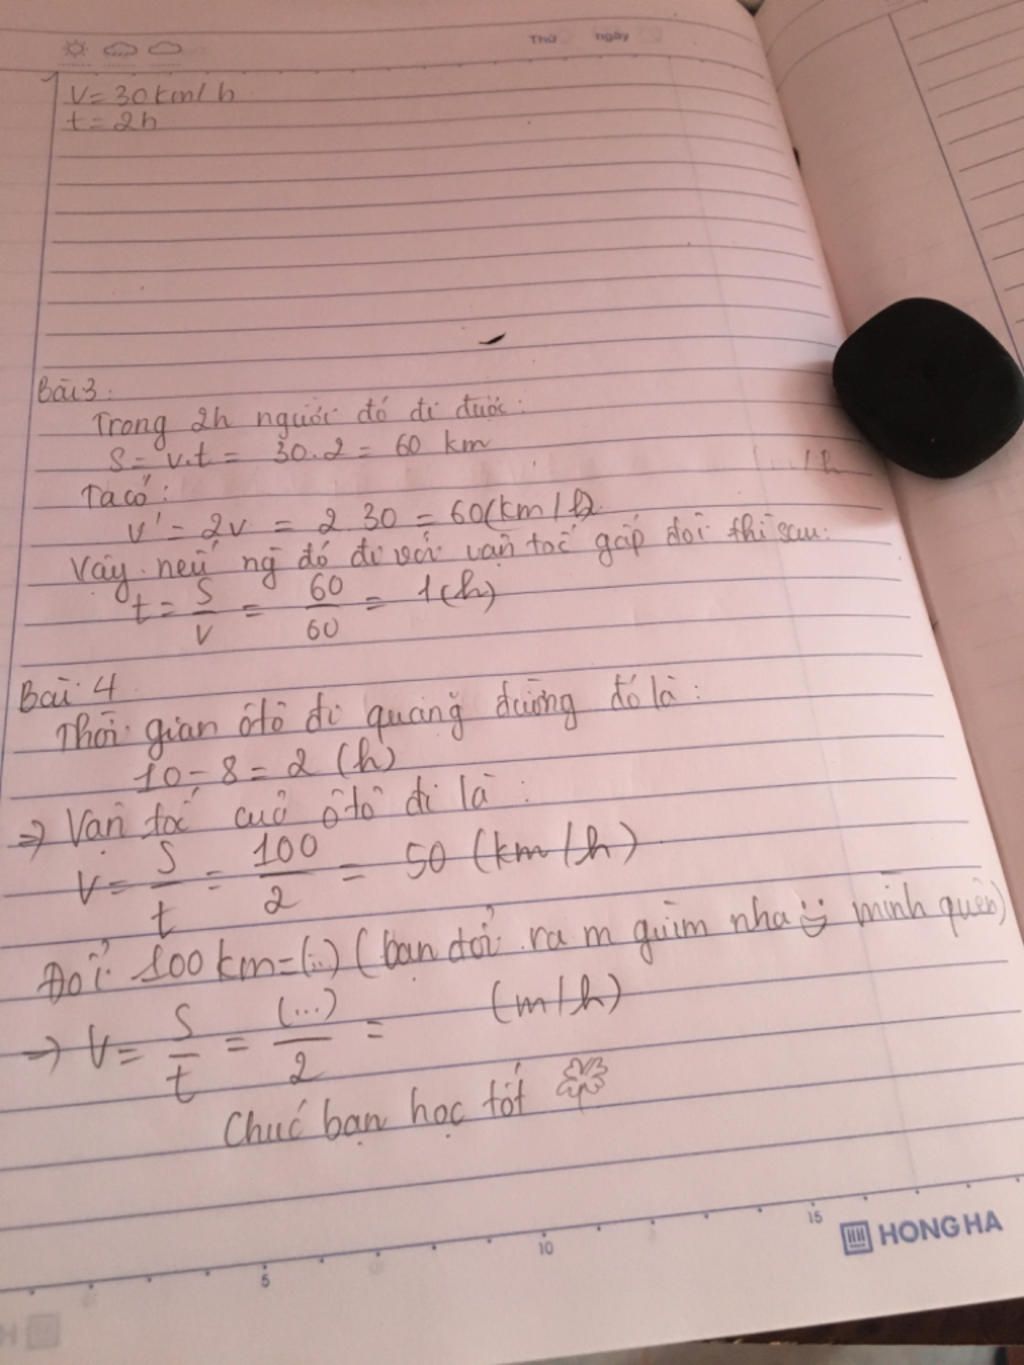 Thứ ngày
V = 30 km/h
t = 2h
Bài 3:
Trong 2h người đó đi được:
S = v.t = 30.2 = 60 km
Ta có:
v' = 2v = 2.30 = 60 (km/h)
Vậy nếu ng đó đi với vận tốc gấp đôi thì sau:
t = S/v = 60/60 = 1 (h)
Bài 4
Thời gian ôtô đi quãng đường đó là:
10 - 8 = 2 (h)
=> Vận tốc của ôtô đi là:
V = S/t = 100/2 = 50 (km/h)
Đổi 100 km = (...) (bạn đổi ra m giùm nha mình quên)
=> V = S/t = (...)/2 = (m/h)
Chúc bạn học tốt
5 10 15
HONG HA